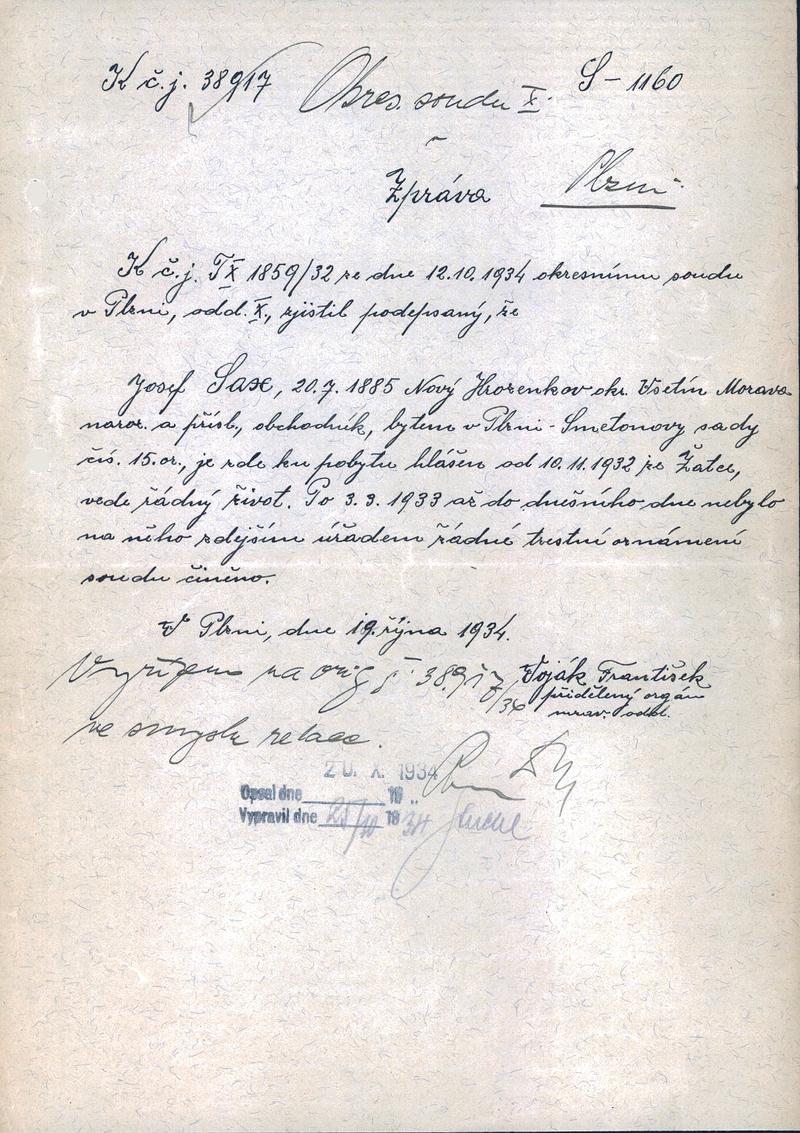 K č.j. 38917
Okres. soudu X.
S - 1160
v
Zpráva
Plzni.
K č.j. T X 1859/32 ze dne 12.10.1934 okresnímu soudu
v Plzni, odd. X., zjistil podepsaný, že
Josef Sax, 20.7.1885 Nový Hrozenkov okr. Vsetín Morava
naroz. a přísl., obchodník, bytem v Plzni - Smetonovy sady
čís. 15. or., je zde ku pobytu hlášen od 10.11.1932 ze Žatce,
vede řádný život. Po 3.3.1933 až do dnešního dne nebylo
na něho zdejším úřadem řádné trestní oznámení
soudu činěno.
V Plzni, dne 19. října 1934.
Vyřízeno na orig č. 38917/36
Voják František
přidělený orgán
mrav. odděl.
ve smyslu relace.
20. X. 1934
Opsal dne 19
Vypravil dne 25/10 1934